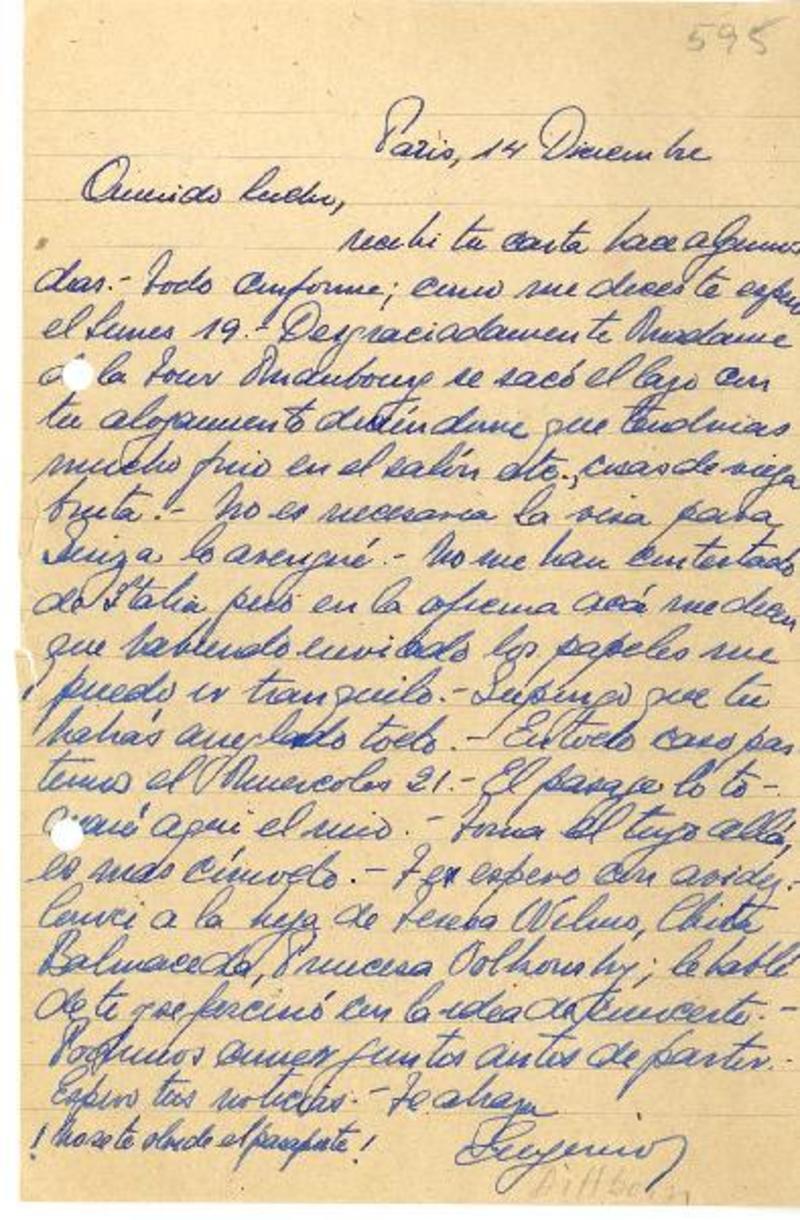 595
Paris, 14 Diciembre
Querido Lucho,
recibi tu carta hace algunos
dias.- Todo conforme; como me dices te espero
el Lunes 19.- Desgraciadamente Madame
de la Tour Maubourg se sacó el lazo con
tu alojamiento diciéndome que tendrias
mucho frio en el salón etc., cosas de vieja
bruta.- No es necesaria la visa para
Suiza lo averigué.- No me han contestado
de Italia pero en la oficina acá me dicen
que habiendo enviado los papeles me
puedo ir tranquilo.- Supongo que tu
habrás arreglado todo.- En todo caso par
temos el Miercoles 21.- El pasaje lo to-
maré aqui el mio.- Toma el tuyo allá,
es mas cómodo.- Te espero con avidez.-
Conoci a la hija de Teresa Wilms, Chita
Balmaceda, Princesa Volkonsky; le hablé
de ti y se fascinó con la idea de conocerte.-
Podemos comer juntos antes de partir.-
Espero tus noticias.- Te abraza
! No se te olvide el pasaporte !
Eugenio